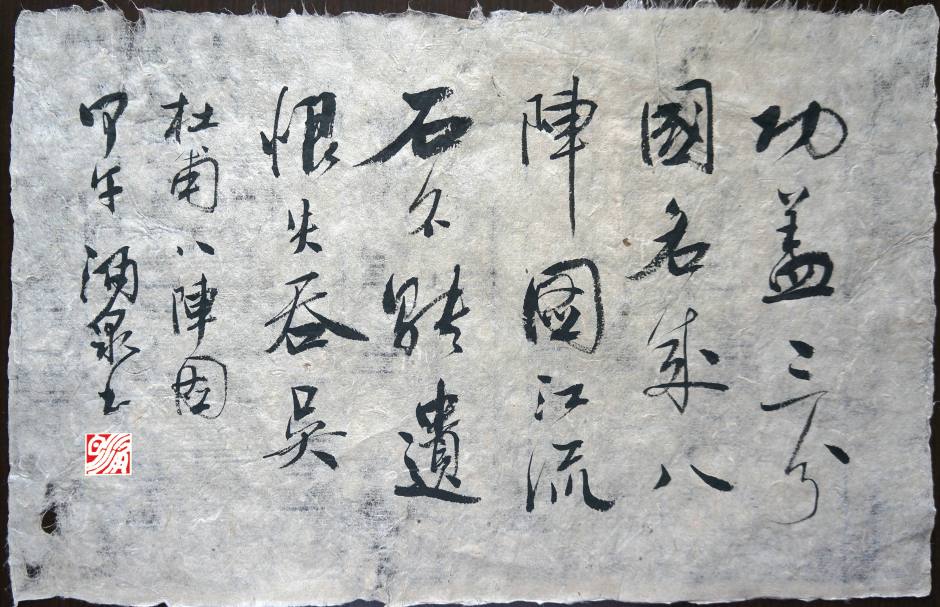 功盖三分
國名成八
陣圖江流
石不轉遺
恨失吞吳
杜甫八陣圖
甲午涌泉书